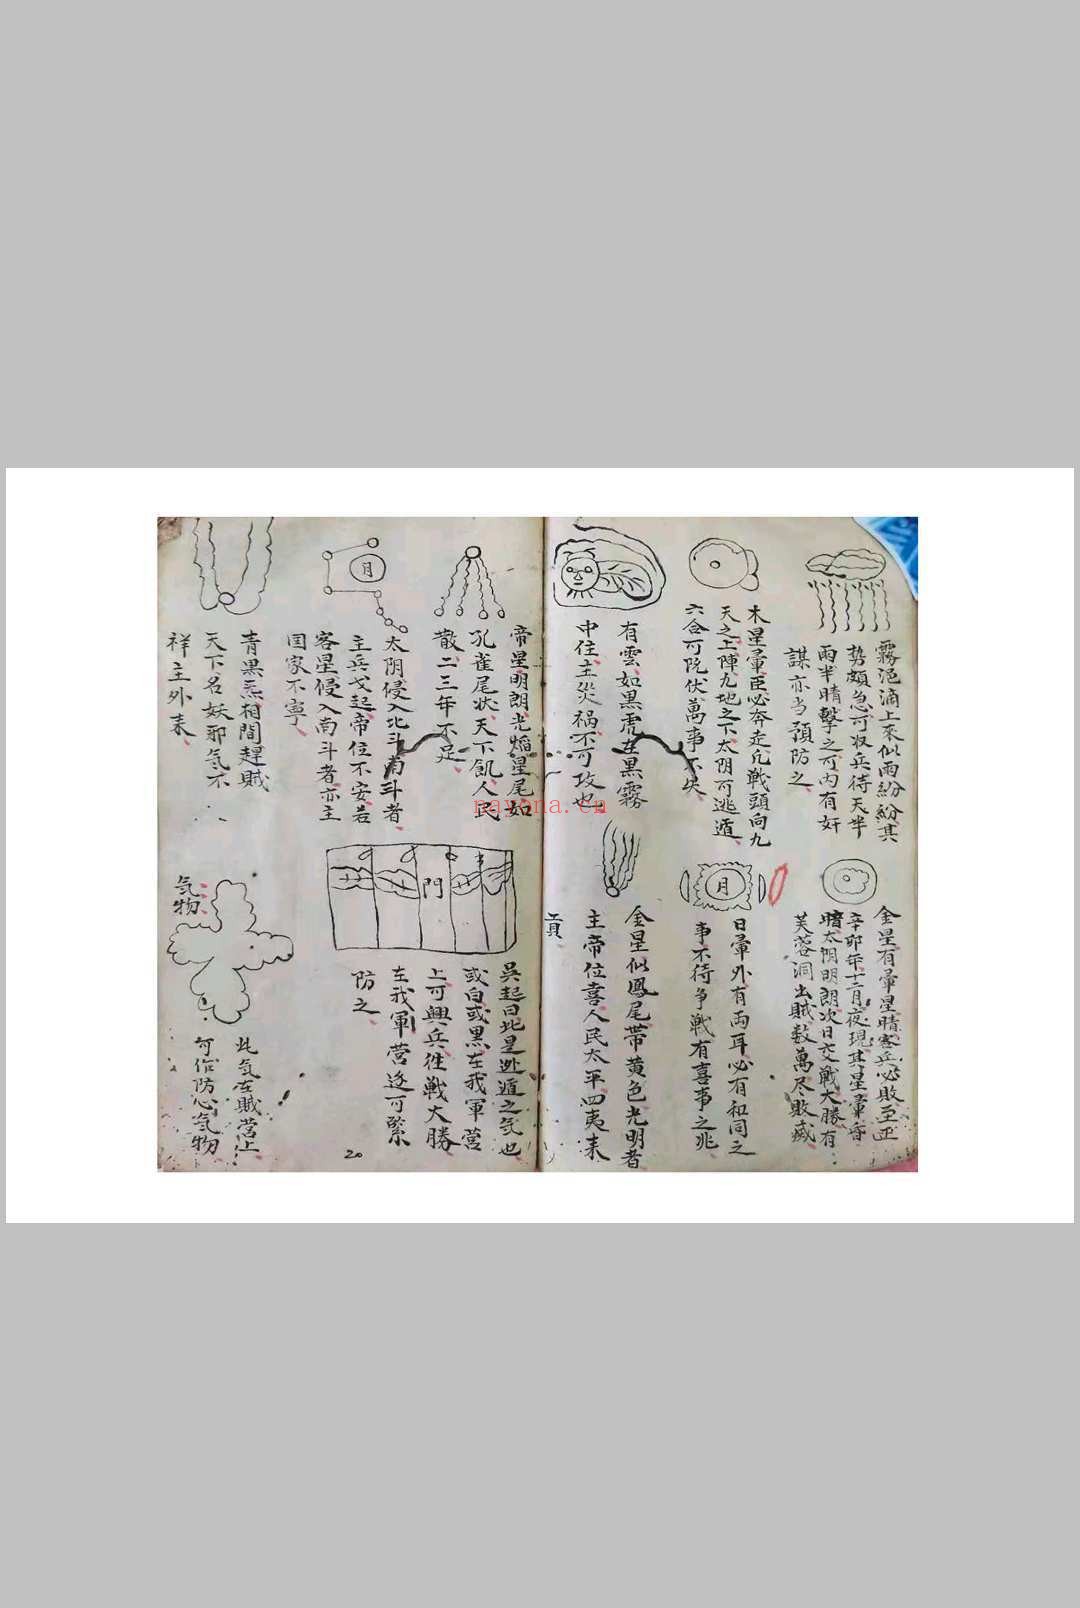 霧浥滴上來似雨紛紛其
势頗急可收兵待天半
雨半晴擊之可内有奸
謀亦当預防之
木星暈臣必奔走凢戦頭向九
天之上陣九地之下太阴可逃遁
六合可阮伏萬事不失
有雲如黒虎在黒霧
中住主災禍不可攻也
金星有暈星晴客兵必敗至正
辛卯年十二月夜現其星暈昏
暗太阴明朗次日交戦大勝有
芙蓉洞出賊数萬尽敗滅
月
日暈外有両耳必有和同之
事不待争戦有喜事之兆
金星似鳳尾帯黄色光明者
主帝位喜人民太平四夷来
貢
帝星明朗光焔星尾如
孔雀尾状天下飢人民
散二三年不足
月
太阴侵入北斗南斗者
主兵戈起帝位不安若
客星侵入南斗者亦主
国家不寧
青黒炁相間趕賊
天下名妖邪気不
祥主外来
門
吳起曰此是逊遁之气也
或白或黒在我軍营
上可興兵往戦大勝
在我軍营逐可緊
防之
気物
此気在賊营上
可作防心気物
20
nayona.cn